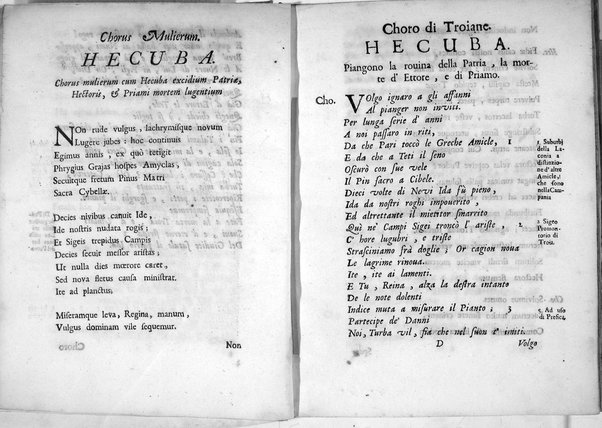 Chorus Mulierum.
HECUBA.
Chorus mulierum cum Hecuba excidium Patriæ,
Hectoris, & Priami mortem lugentium
NOn rude vulgus, lachrymisque novum
Lugere jubes: hoc continuus
Egimus annis, ex quò tetigit
Phrygius Grajas hospes Amyclas,
Secuitque fretum Pinus Matri
Sacra Cybellæ.
Decies nivibus canuit Ide,
Ide nostris nudata rogis;
Et Sigeis trepidus Campis
Decies secuit messor aristas;
Ut nulla dies mœrore caret,
Sed nova fletus causa ministrat.
Ite ad planctus,
Miseramque leva, Regina, manum,
Vulgus dominam vile sequemur.
Non
Choro di Troiane.
HECUBA.
Piangono la rouina della Patria, la mor-
te d' Ettore, e di Priamo.
Cho. VOlgo ignaro a gli affanni
Al pianger non inviti.
Per lunga serie d' anni
A noi passaro in riti,
Da che Pari toccò le Greche Amicle, 1
E da che a Teti il seno
Oscurò con sue vele
Il Pin sacro a Cibele.
Dieci volte di Nevi Ida fù pieno,
Ida da nostri roghi impouerito,
Ed altrettante il mietitor smarrito
Quì ne' Campi Sigei troncò l' ariste, 2
C' hore lugubri, e triste
Strasciniamo frà doglie; Or cagion noua
Le lagrime rinoua.
Ite, ite ai lamenti.
E Tu, Reina, alza la destra intanto
De le note dolenti
Indice muta a misurare il Pianto; 3
Partecipe de' Danni
Noi, Turba vil, fia che nel suon t' imiti.
1 Suburbj
della La-
conia a
distinzio-
ne d' altre
Amicle,
che sono
nella Cam-
pania
2 Sigeo
Promon-
torio di
Troia.
3 Ad uso
di Prefica.
D
Volgo